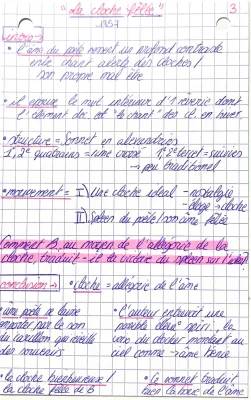 "La cloche fêlée"
3
1857
intro :
• l'âme du poète ressent un profond contraste
entre chant alerte des cloches /
son propre mal être
• il épouse le mvt intérieur d'1 rêverie dont
l'élément est "le chant" des en hiver
• structure = Sonnet en alexandrins
1, 2e quatrains = rime croisé 1, 2e tercet = suivies
→ peu traditionnel
• mouvement = I) Une cloche ideal - nostalgie
- éloge → cloche
II) Spleen du poète / son âme fêlée
Comment B. au moyen de l'allégorie de la
cloche, traduit-il la victoire du spleen sur l'idéal
conclusion → • cloche = allégorie de l'âme
• le poète se laisse
emporter par le son
du carillon qui réveille
des souvenirs
• L'auteur entrevoit une
possible élévat° spiri., la
voix du clocher montant au
ciel comme → âme
• la cloche bienheureuse /
la cloche fêlée de B
• Ce sonnet traduit
bien la force de l'âme